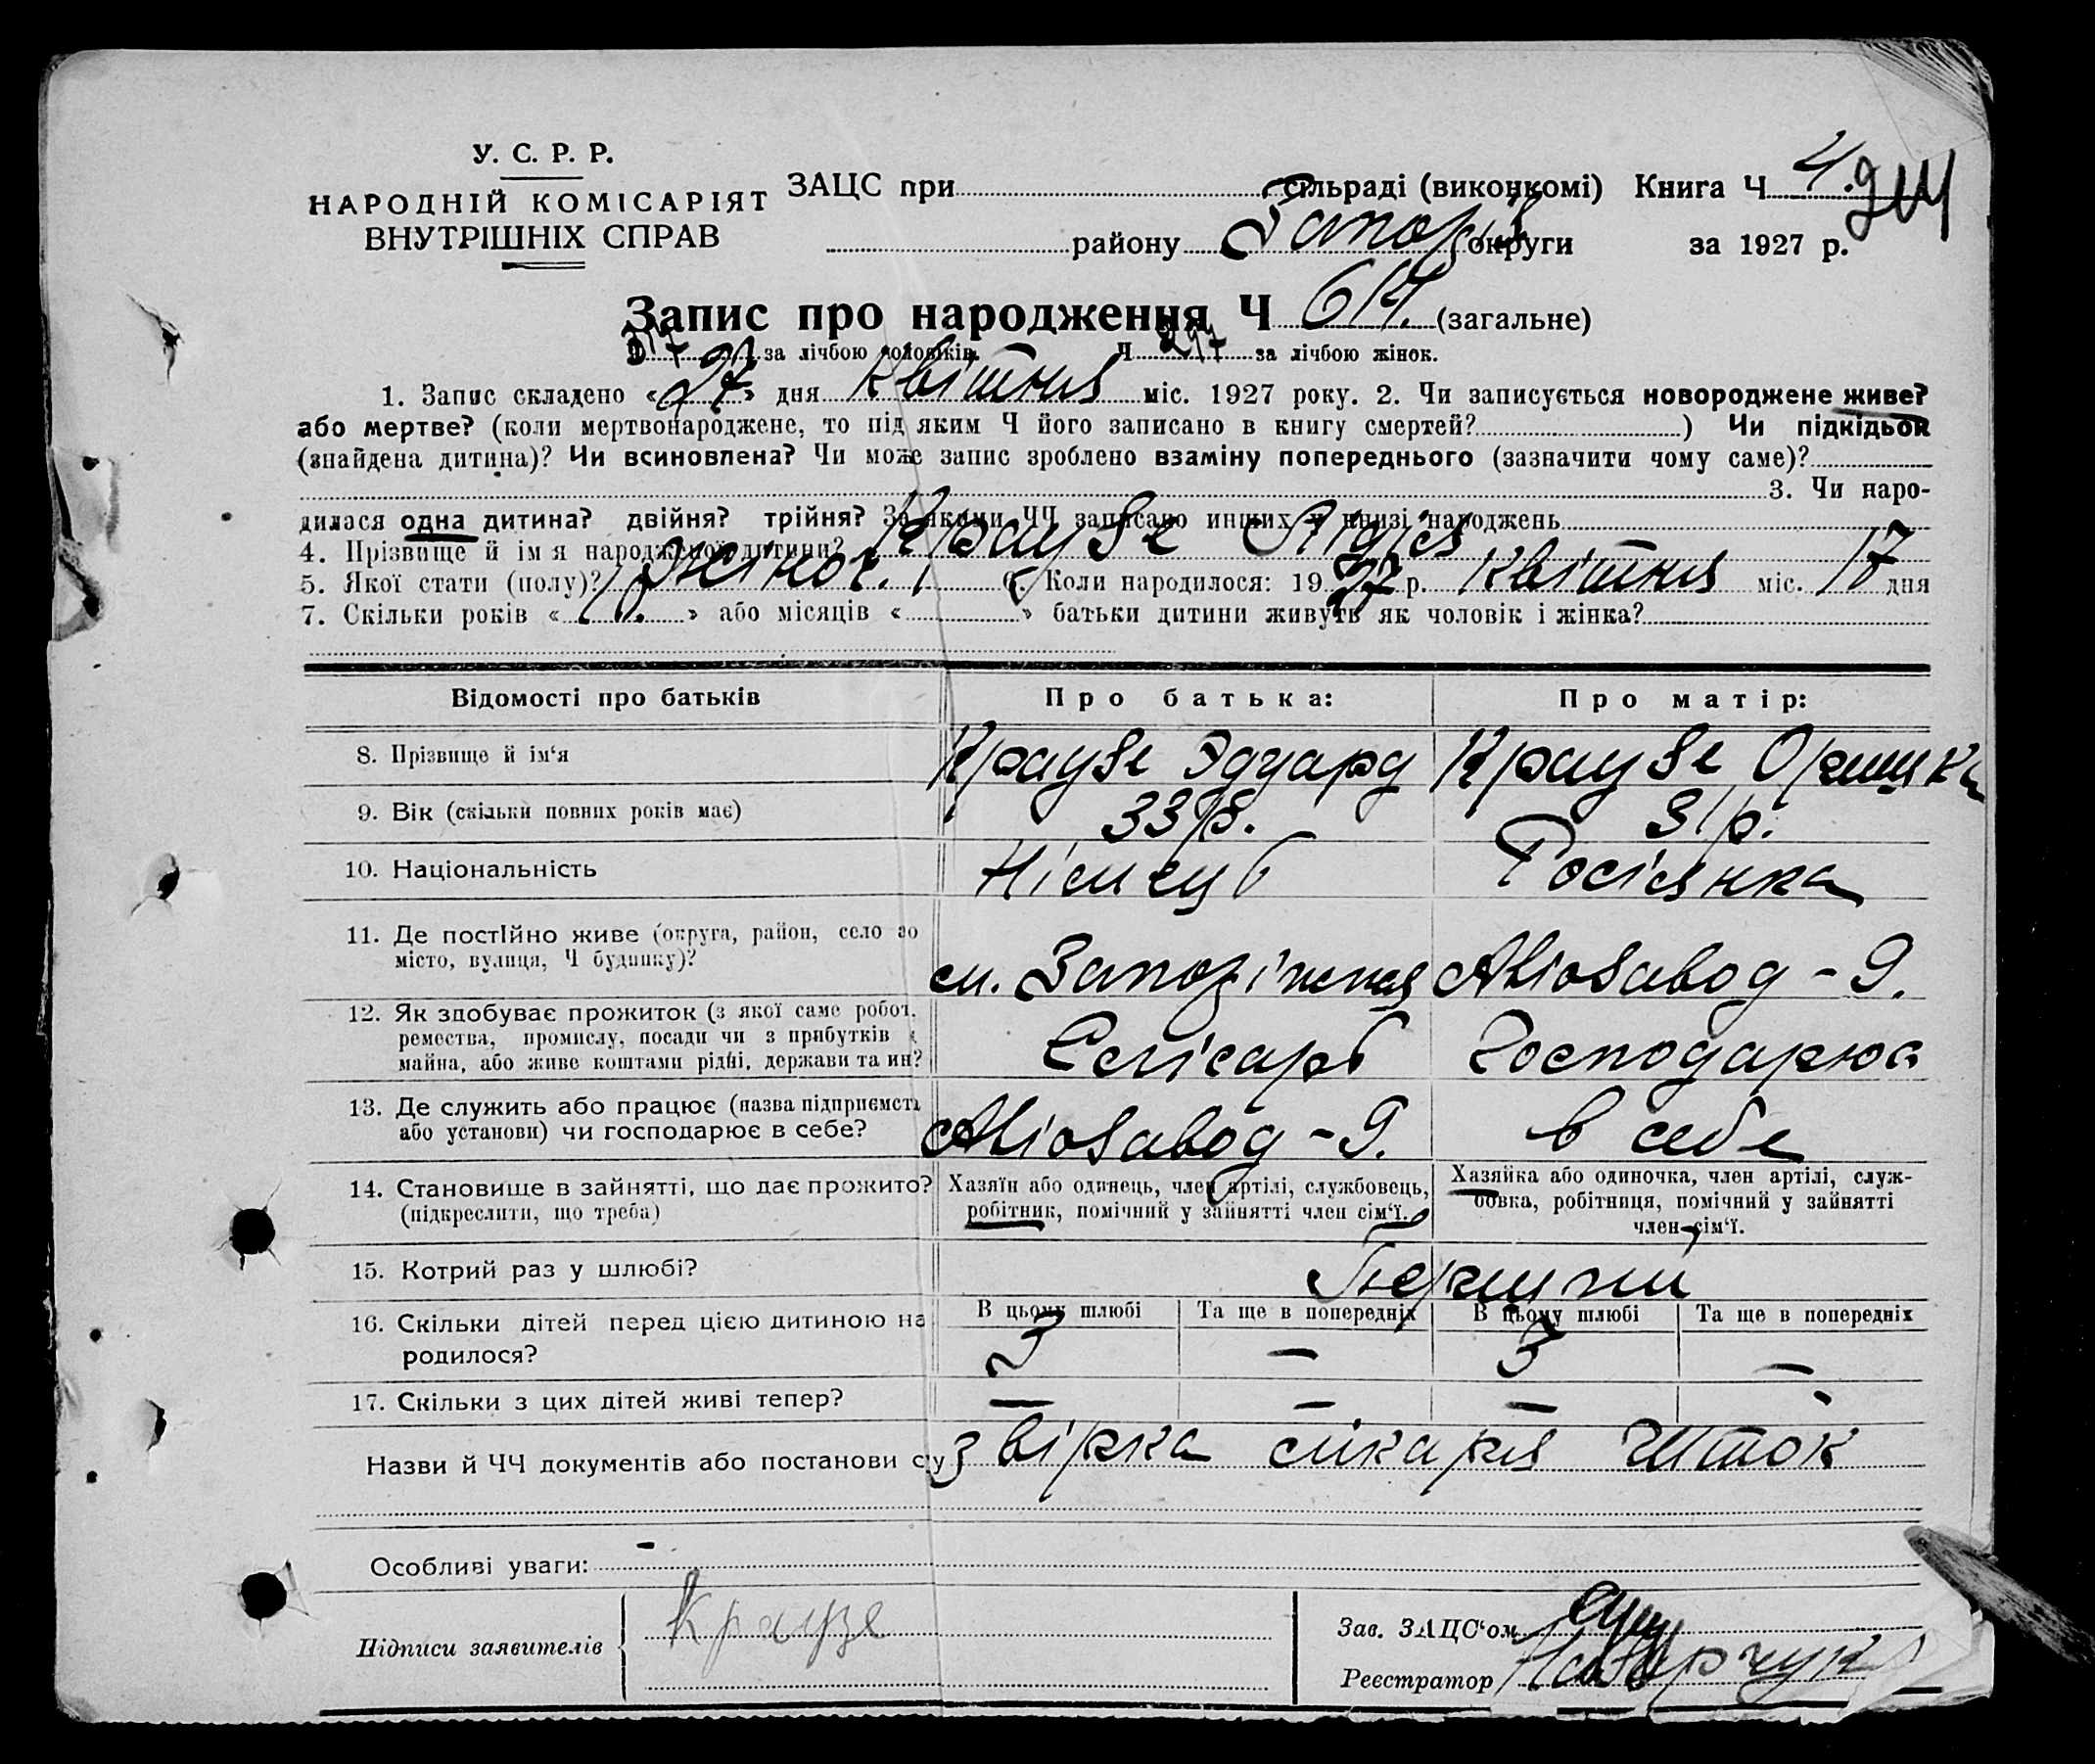 У. С. Р. Р.
НАРОДНІЙ КОМІСАРІЯТ
ВНУТРІШНІХ СПРАВ
ЗАЦС при сільраді (виконкомі) Книга Ч 4.
району Запоріз округи за 1927 р.
Запис про народження Ч 614. (загальне)
Ч 317 за лічбою чоловіків. Ч 297 за лічбою жінок.
1. Запис складено «27» дня Квітня міс. 1927 року. 2. Чи записується новороджене живе?
або мертве? (коли мертвонароджене, то під яким Ч його записано в книгу смертей? ) Чи підкідьок
(знайдена дитина)? Чи всиновлена? Чи може запис зроблено взаміну попереднього (зазначити чому саме)?
3. Чи наро-
дилася одна дитина? двійня? трійня? За якими ЧЧ записано инших у книзі народжень
4. Прізвище й ім я народженої дитини? Краузе Лідія
5. Якої стати (полу)? жіноч. 6. Коли народилося: 1927 р. Квітня міс. 17 дня
7. Скільки років « » або місяців « » батьки дитини живуть як чоловік і жінка?
Відомості про батьків Про батька: Про матір:
8. Прізвище й ім‘я Краузе Эдуард Краузе
9. Вік (скільки повних років має) 33 р. 31 р.
10. Національність Німець Росіянка
11. Де постІйно живе (округа, район, село або
місто, вулиця, Ч будинку)? м. Запоріжжя Авіозавод - 9.
12. Як здобуває прожиток (з якої саме робот.
ремества, промислу, посади чи з прибутків
майна, або живе коштами рідні, держави та ин? Слісарь Господарює
13. Де служить або працює (назва підприємств
або установи) чи господарює в себе? Авіозавод - 9. в себе
14. Становище в зайнятті, що дає прожито? Хазяїн або одинець, член артілі, службовець, Хазяйка або одиночка, член артілі, служ-
(підкреслити, що треба) робітник, помічний у зайнятті член сім‘ї. бовка, робітниця, помічний у зайнятті
член сім‘ї.
15. Котрий раз у шлюбі? Перший
16. Скільки дітей перед цією дитиною на В цьому шлюбі Та ще в попередніх В цьому шлюбі Та ще в попередніх
родилося? 3 — 3 —
17. Скільки з цих дітей живі тепер? — — — -
Назви й ЧЧ документів або постанови су звірка лікаря Шток
Особливі уваги: -
Підписи заявителів Краузе
Зав. ЗАЦС‘ом
Реєстратор